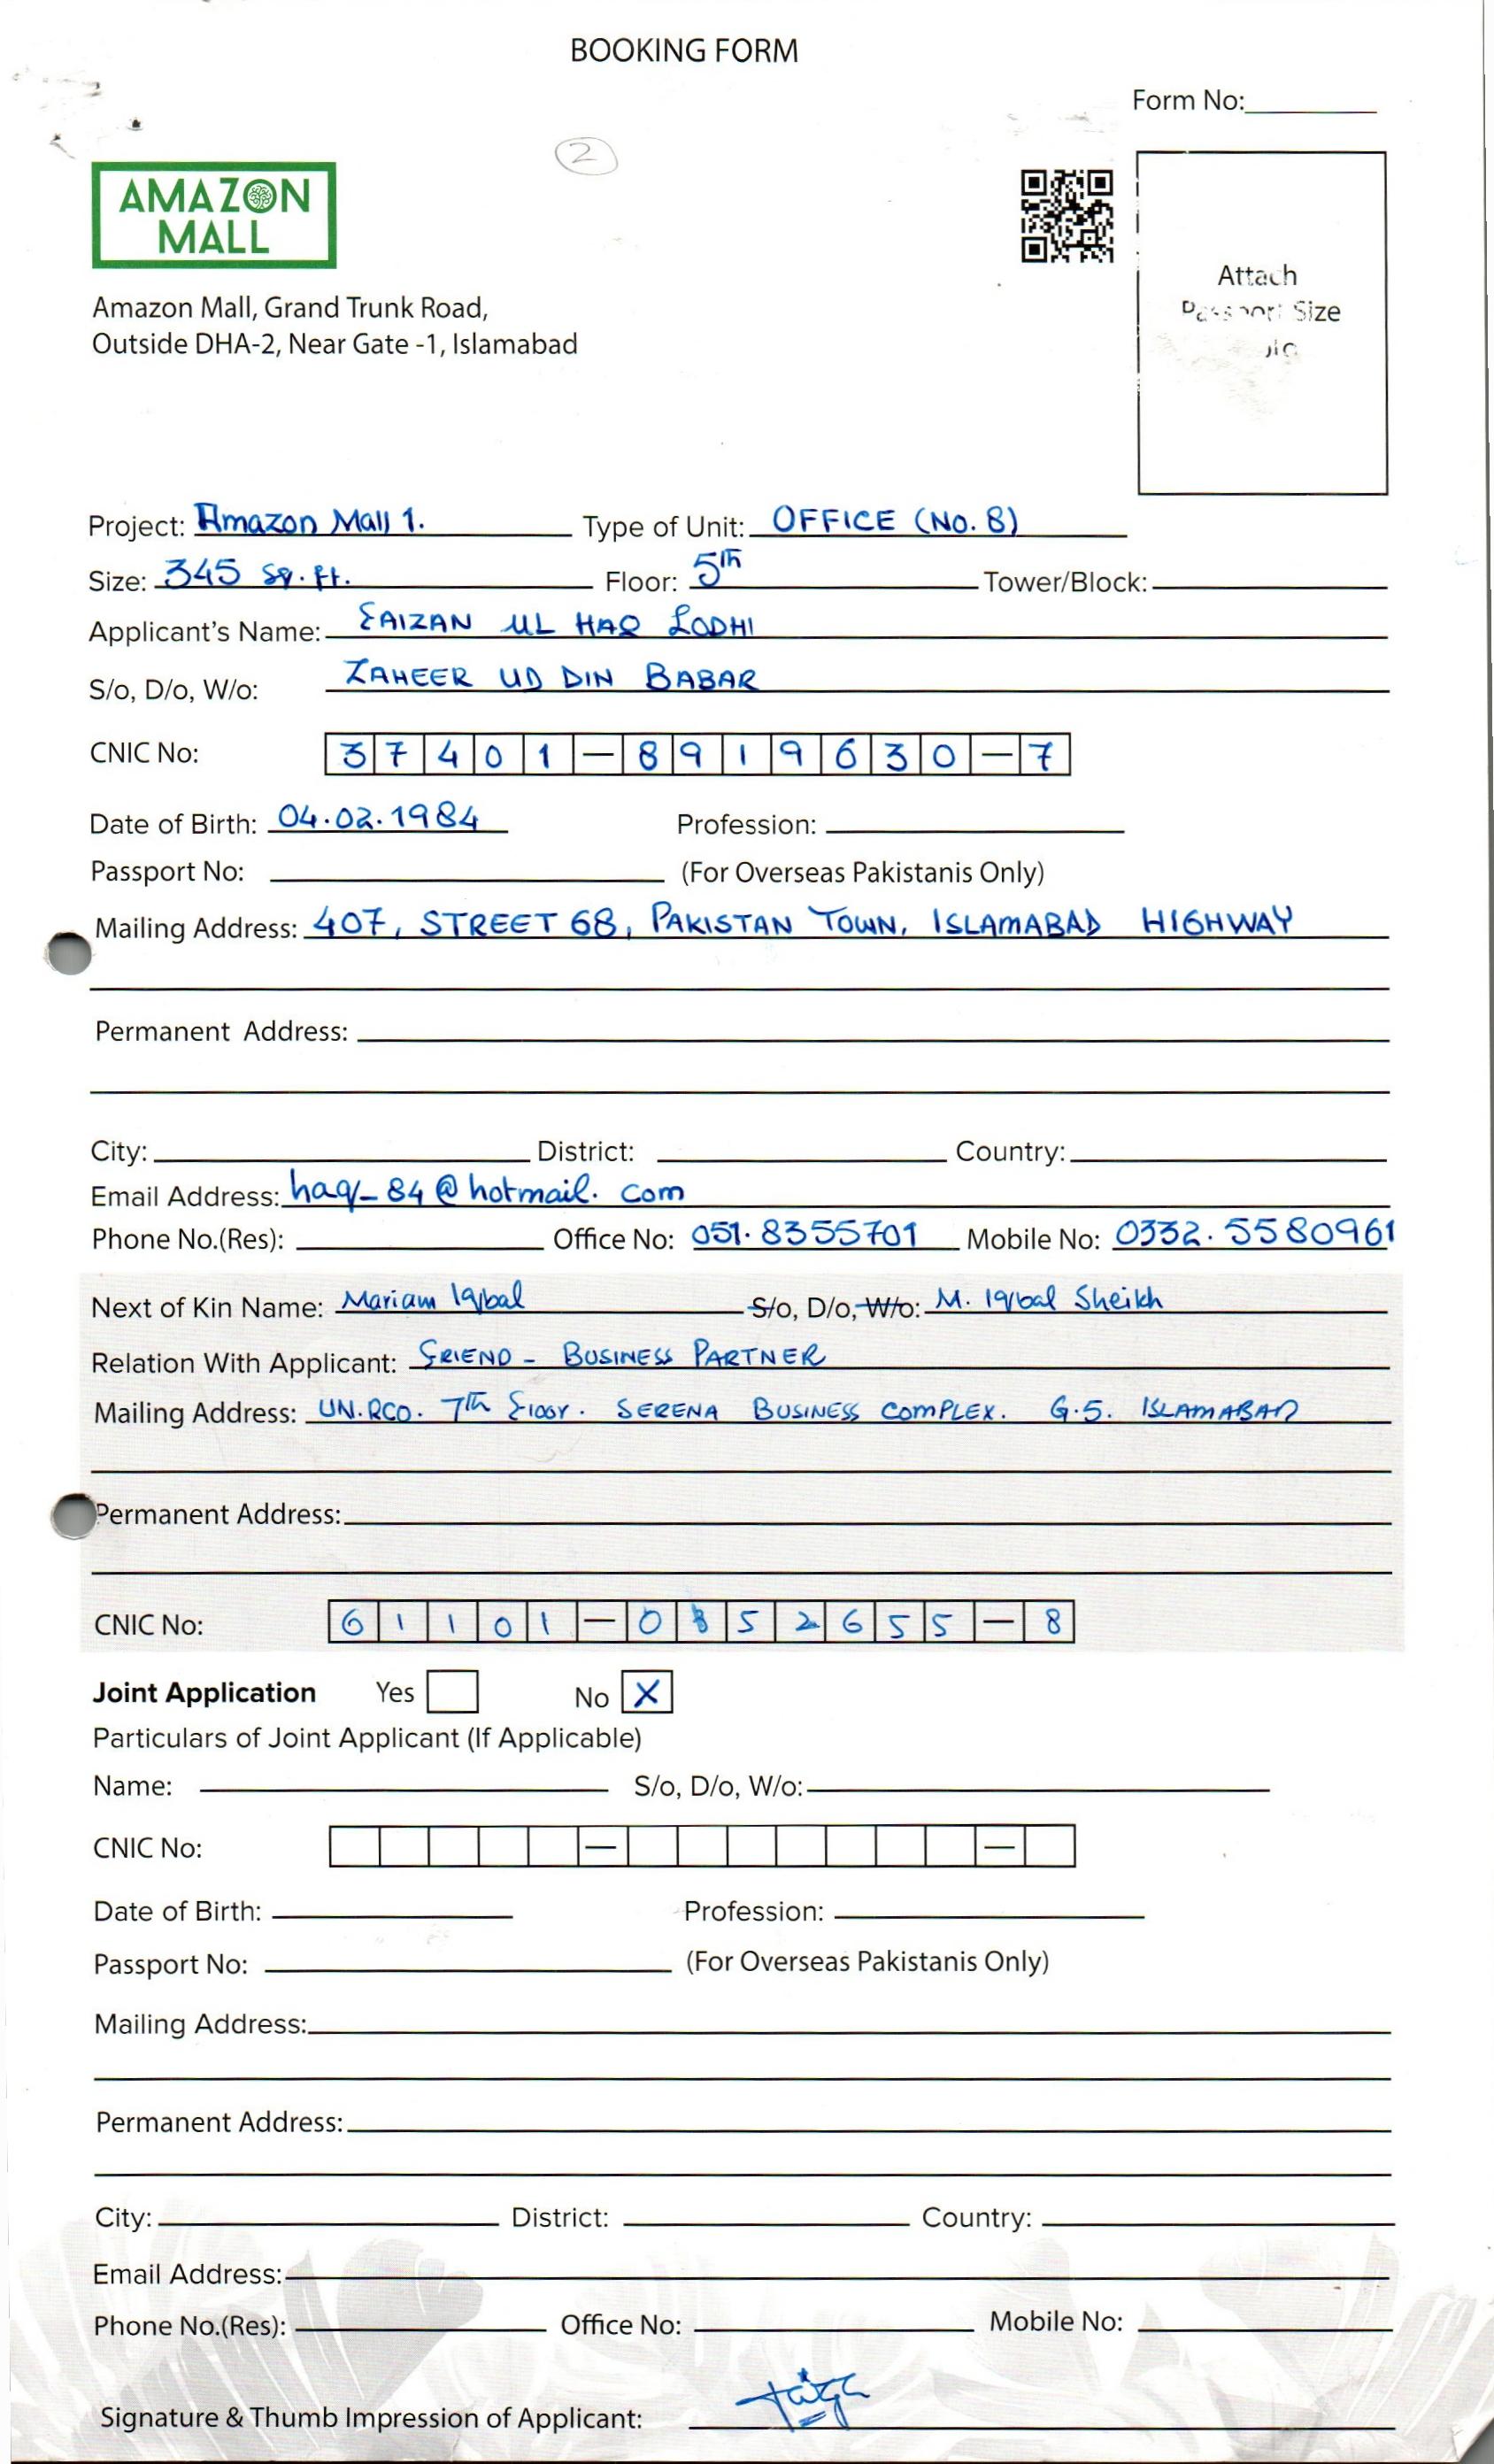 BOOKING FORM
Form No:
2
AMAZON
MALL
Amazon Mall, Grand Trunk Road,
Outside DHA-2, Near Gate -1, Islamabad
Attach
Passport Size
Project: Amazon Mall 1. Type of Unit: OFFICE (NO. 8)
Size: 345 Sq. ft. Floor: 5th Tower/Block:
Applicant's Name: FAIZAN UL HAQ LODHI
S/o, D/o, W/o: ZAHEER UD DIN BABAR
CNIC No: 37401-8919630-7
Date of Birth: 04.02.1984 Profession:
Passport No: (For Overseas Pakistanis Only)
Mailing Address: 407, STREET 68, PAKISTAN TOWN, ISLAMABAD HIGHWAY
Permanent Address:
City: District: Country:
Email Address: haq_84@hotmail.com
Phone No.(Res): Office No: 051.8355701 Mobile No: 0332.5580961
Next of Kin Name: Mariam Iqbal S/o, D/o, W/o: M. Iqbal Sheikh
Relation With Applicant: FRIEND - BUSINESS PARTNER
Mailing Address: UN.RCO. 7th Floor. SERENA BUSINESS COMPLEX. G.5. ISLAMABAD
Permanent Address:
CNIC No:
Joint Application Yes No X
Particulars of Joint Applicant (If Applicable)
Name: S/o, D/o, W/o:
CNIC No: — —
Date of Birth: Profession:
Passport No: (For Overseas Pakistanis Only)
Mailing Address:
Permanent Address:
City: District: Country:
Email Address:
Phone No.(Res): Office No: Mobile No:
Signature & Thumb Impression of Applicant: